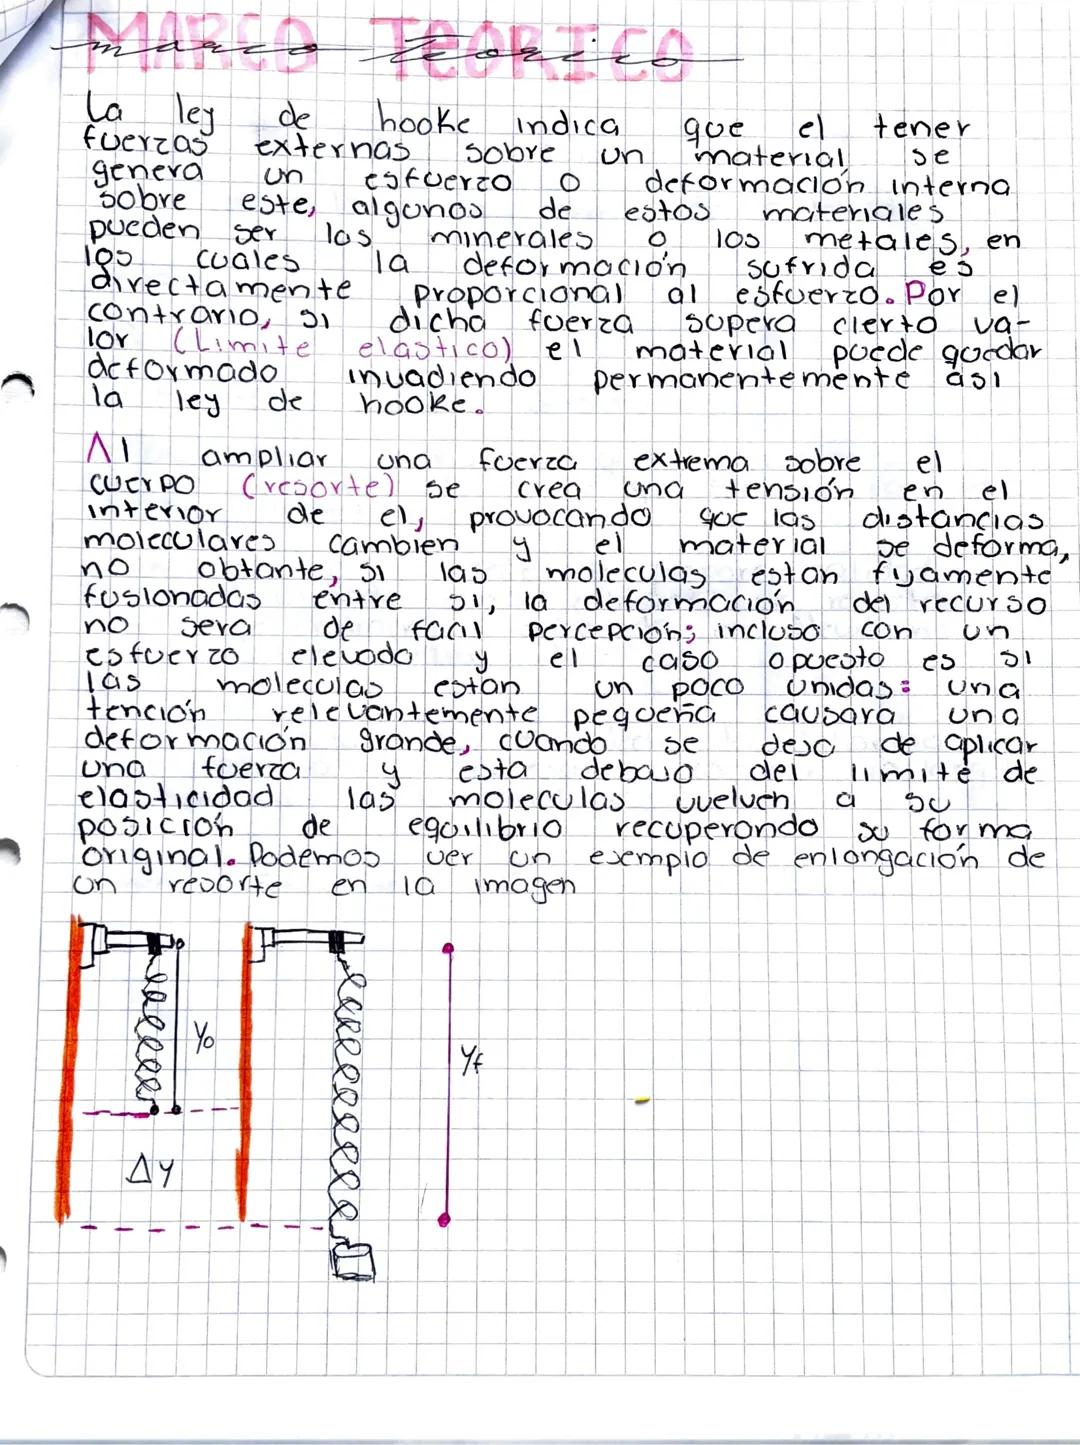 MARCO TEORICO
marco teorico
La ley de hooke indica que el tener
fuerzas externas sobre un material se
genera un esfuerzo o deformación interna
sobre este, algunos de estos materiales
pueden ser los minerales o los metales, en
los cuales la deformación sufrida es
directamente proporcional al esfuerzo. Por el
contrario, si dicha fuerza supera cierto va-
lor (Limite elastico) el material puede quedar
deformado invadiendo permanentemente asi
la ley de hooke.
Al ampliar una fuerza extrema sobre el
cuerpo (resorte) se crea una tensión en el
interior de el, provocando que las distancias
moleculares cambien y el material se deforma,
no obtante, si las moleculas estan fijamente
fusionadas entre si, la deformación del recurso
no sera de facil percepción; incluso con un
esfuerzo elevado y el caso opuesto es si
las moleculas estan un poco unidas: una
tención relevantemente pequeña causara una
deformación grande, cuando se deja de aplicar
una fuerza y esta debajo del limite de
elasticidad las moleculas vuelven a su
posición de equilibrio recuperando su forma
original. Podemos ver un ejemplo de enlongación de
un resorte en la imagen
Yo
Yf
ΔY